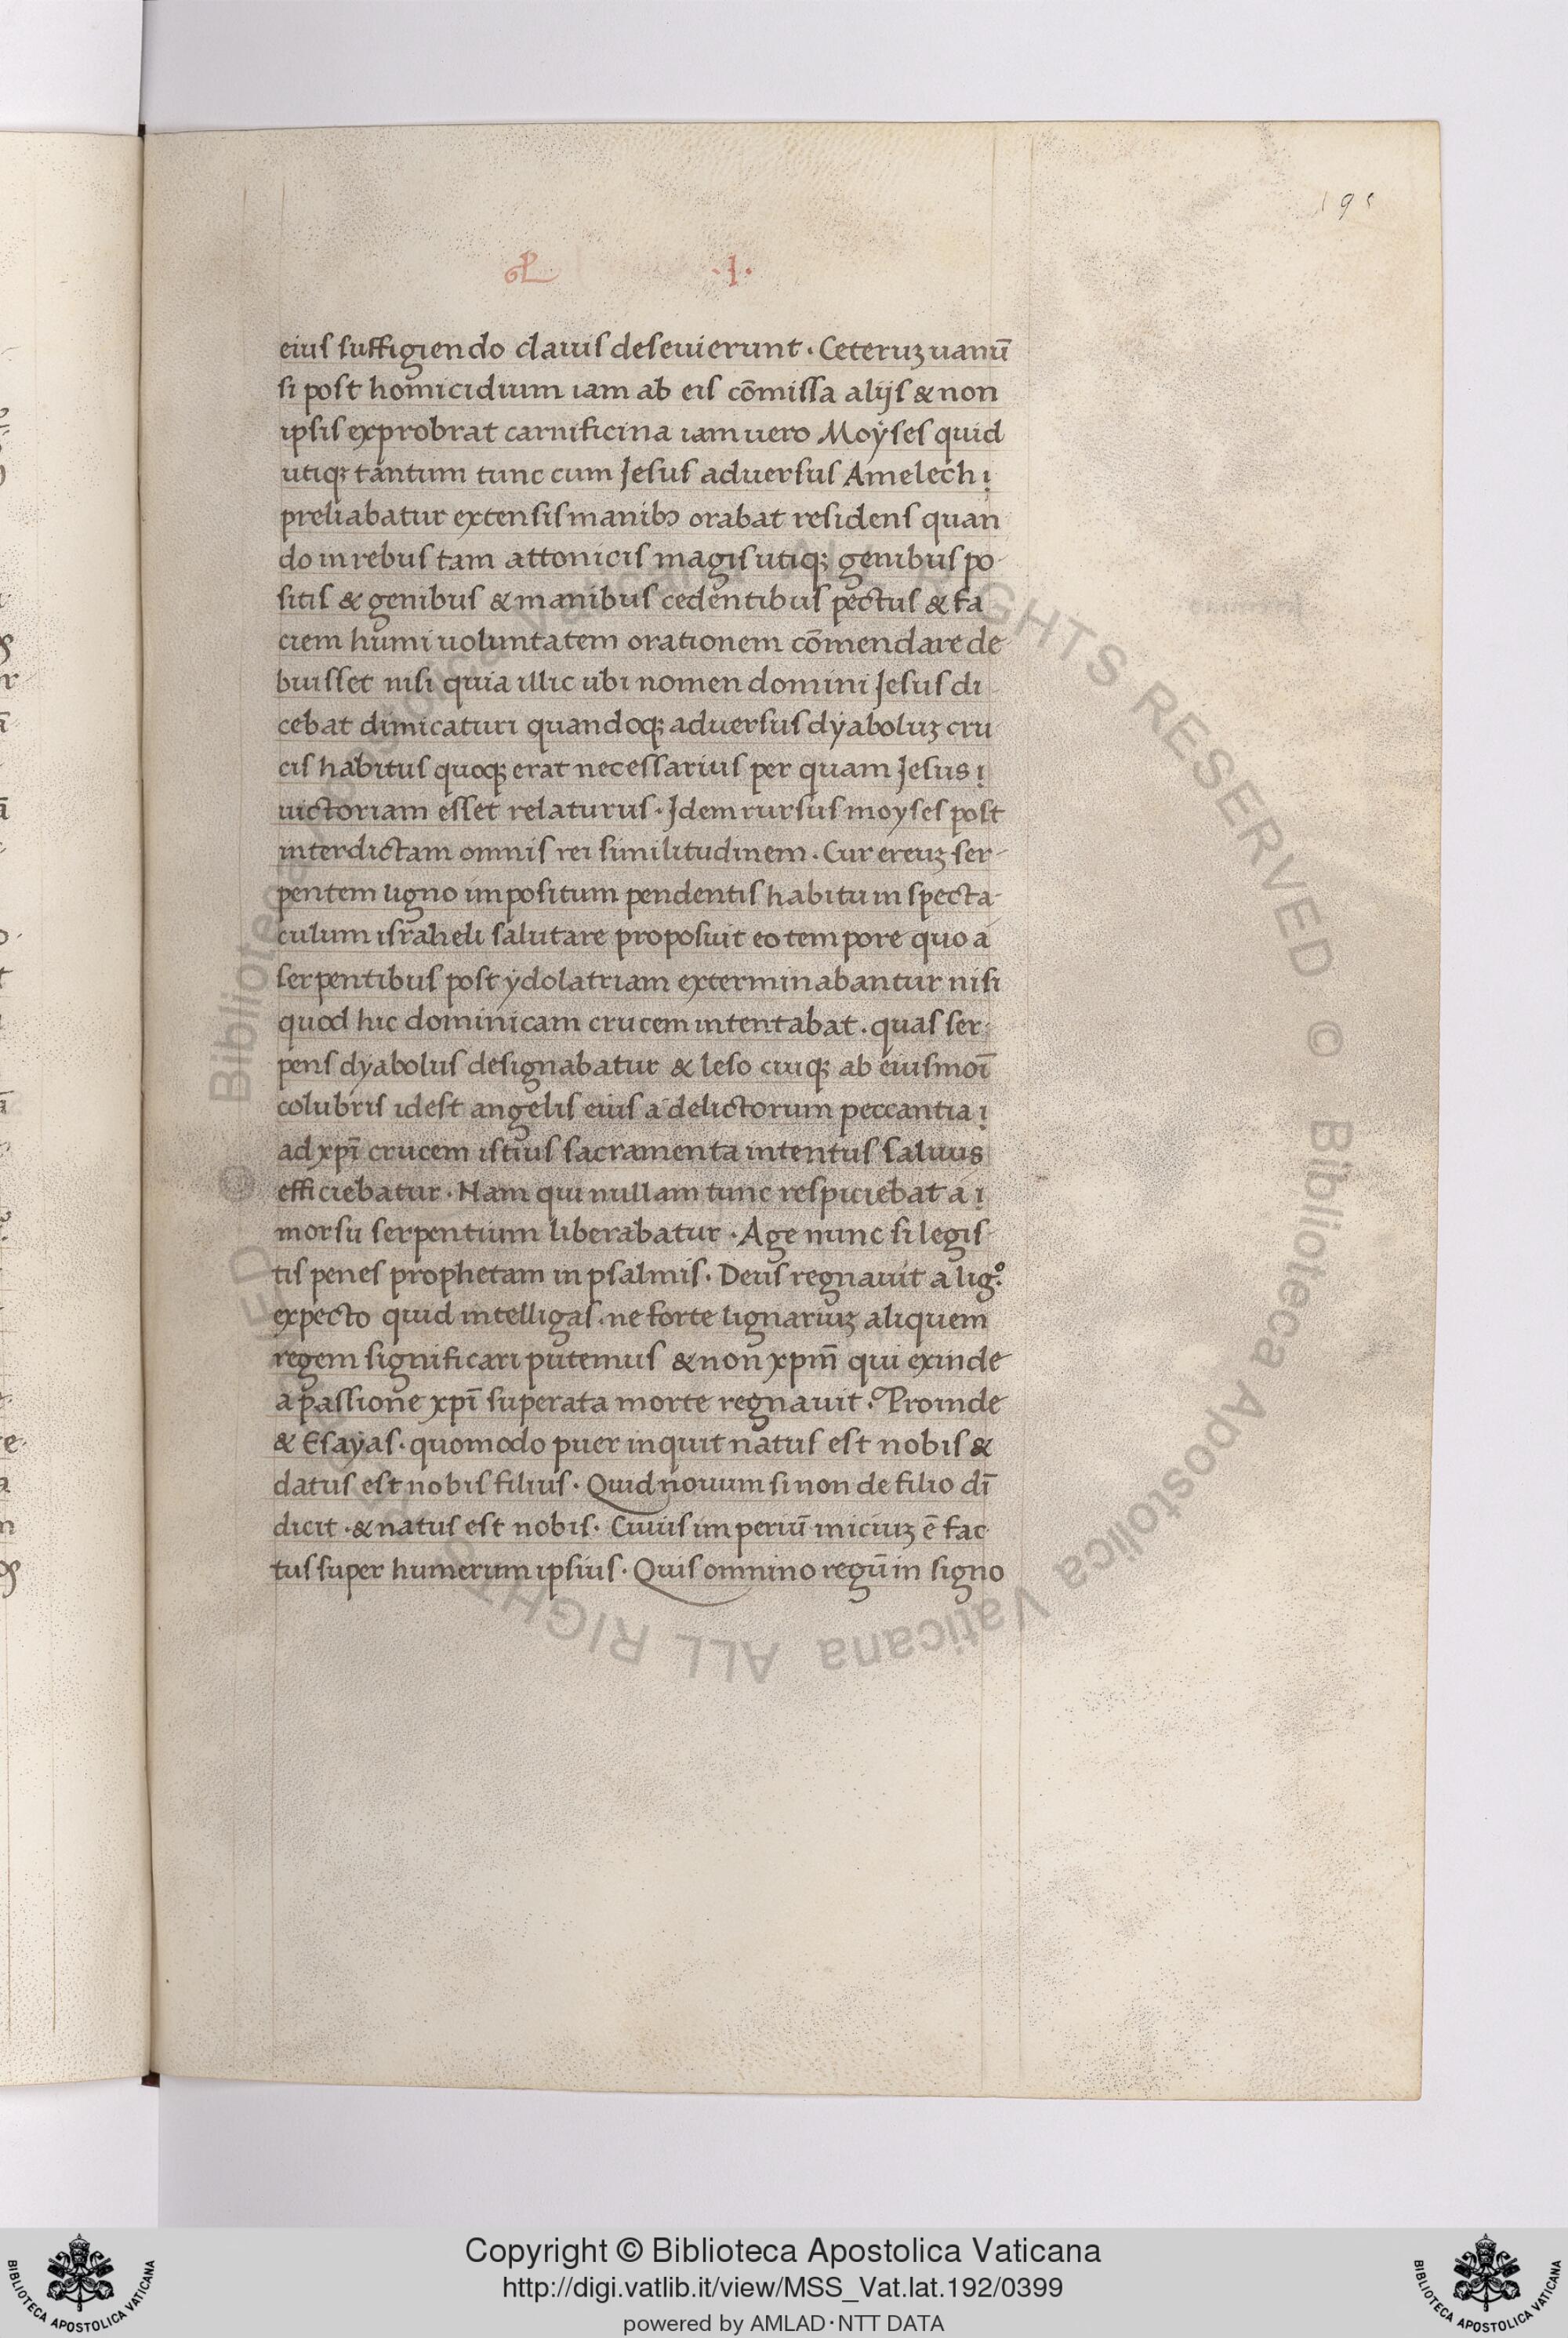 195
·I·
eius suffigiendo clauis deseuierunt · Ceteruꝫ uanū
si post homicidium iam ab eis cōmissa alijs & non
ipsis exprobrat carnificina iam uero Moẏses quid
utiqꝫ tantum tunc cum Jesus aduersus Amelech
preliabatur extensis manibꝯ orabat residens quan
do in rebus tam attonicis magis utiqꝫ genibus po-
sitis & genibus & manibus cedentibus pectus & fa
ciem humi uoluntatem orationem cōmendare de
buisset nisi quia illic ubi nomen domini Jesus di-
cebat dimicaturi quandoqꝫ aduersus dẏaboluꝫ cru
cis habitus quoqꝫ erat necessarius per quam Jesus
uictoriam esset relaturus · Jdem rursus moyses post
interdictam omnis rei similitudinem · Cur ereuꝫ ser-
pentem ligno impositum pendentis habitu in specta-
culum israheli salutare proposuit eo tempore quo a
serpentibus post ẏdolatriam exterminabantur nisi
quod hic dominicam crucem intentabat · quas ser-
pens dyabolus designabatur & leso cuiqꝫ ab eiusmoī
colubris idest angelis eius a delictorum peccantia
ad xpī crucem istius sacramenta intentus saluus
efficiebatur · Nam qui nullam tunc respiciebat a
morsu serpentium liberabatur · Age nunc si legis-
tis penes prophetam in psalmis · Deus regnauit a lig°.
expecto quid intelligas · ne forte lignariuꝫ aliquem
regem significari putemus & non xpm̄ qui exinde
a passione xpī superata morte regnauit · Proinde
& Esaẏas · quomodo puer inquit natus est nobis &
datus est nobis filius · Quid nouum si non de filio dī
dicit · & natus est nobis · Cuius imperiū iniciuꝫ ē fac
tus super humerum ipsius · Quis omnino regū in signo
© Biblioteca Apostolica Vaticana ALL RIGHTS RESERVED
© Biblioteca Apostolica Vaticana ALL RIGHTS RESERVED
Copyright © Biblioteca Apostolica Vaticana
http://digi.vatlib.it/view/MSS_Vat.lat.192/0399
powered by AMLAD·NTT DATA
BIBLIOTECA APOSTOLICA VATICANA
BIBLIOTECA APOSTOLICA VATICANA